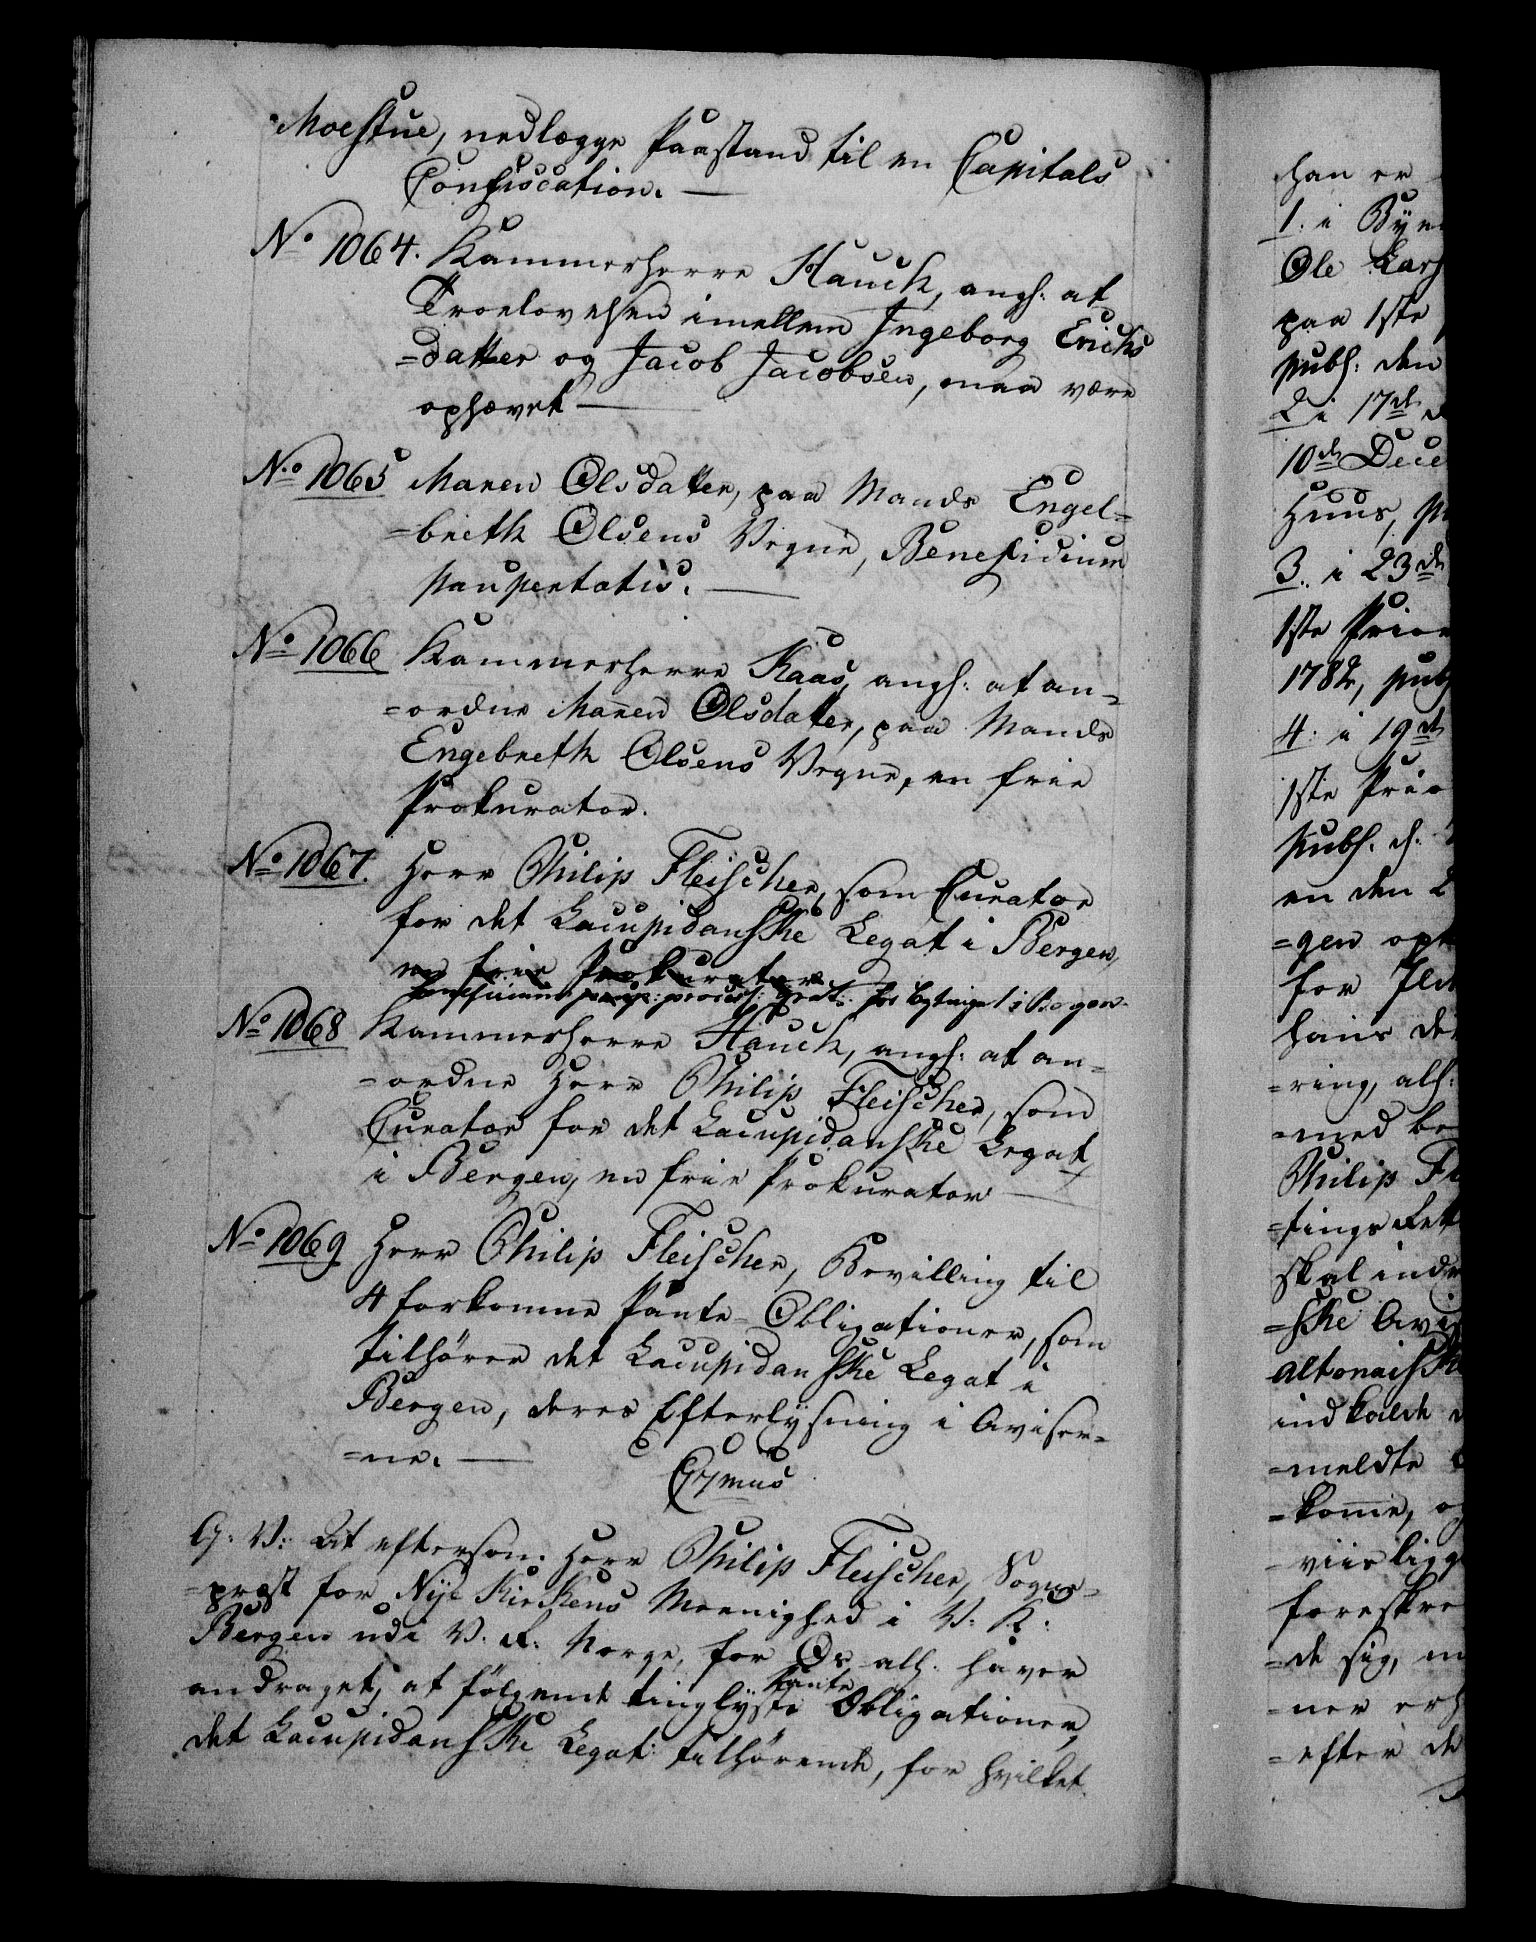 Moestue, nedlægge Paastand til en Capitals
Confiscation. —
No 1064. Kammerherre Hauch, angl: at
Troelovelsen imellem Ingeborg Erichs
=datter og Jacob Jacobsen, maa være
ophævet —
No. 1065 Maren Olsdatter, paa Mands Engel=
=breth Olsens Vegne, Beneficium
paupertatis. —
No 1066 Kammerherre Kaas, angl: at an=
=ordne Maren Olsdatter, paa Mands
Engebreth Olsens Vegne, en frie
Prokurator.
No 1067. Herr Philip Fleischer, som Curator
for det Lacupidanske Legat i Bergen,
en frie Prokurator
beneficium paup: process: grat: for bytinget i Bergen.
No 1068 Kammerherre Hauch, angl: at an=
=ordne Herr Philip Fleischer, som
Curator for det Lacupidanske Legat
i Bergen, en frie Prokurator —
No 1069 Herr Philip Fleischer, Bevilling til
4 forkomne Pante-Obligationer, som
tilhører det Lacupidanske Legat i
Bergen, deres Efterlysning i Aviser=
=ne. —
G: V: At eftersom Herr Philip Fleischer, Sogne=
=præst for Nÿe Kirkens Meenighed i V: K:
Bergen udi V. R. Norge, for Os all: haver
andraget, at følgende tinglyste Pante Obligationer,
det Lacupidanske Legat tilhørende, for hvilket
han er
1. i Bÿe
Ole Lar
paa 1ste
publ: den
2 i 17de
10de Dece
Huus,
3. i 23de
1ste Prior
1782, publ
4. i 19de
1ste Prio
publ. d.
en den 2
=gen op
for
hans de
=ring, all:
=med be
Philip F
=tings Rett
skal ind
=ske Avi
altonaiske
indkalde
=meldte
=komme, o
viisligg
foreskre
=de sig,
ner er
=efter de